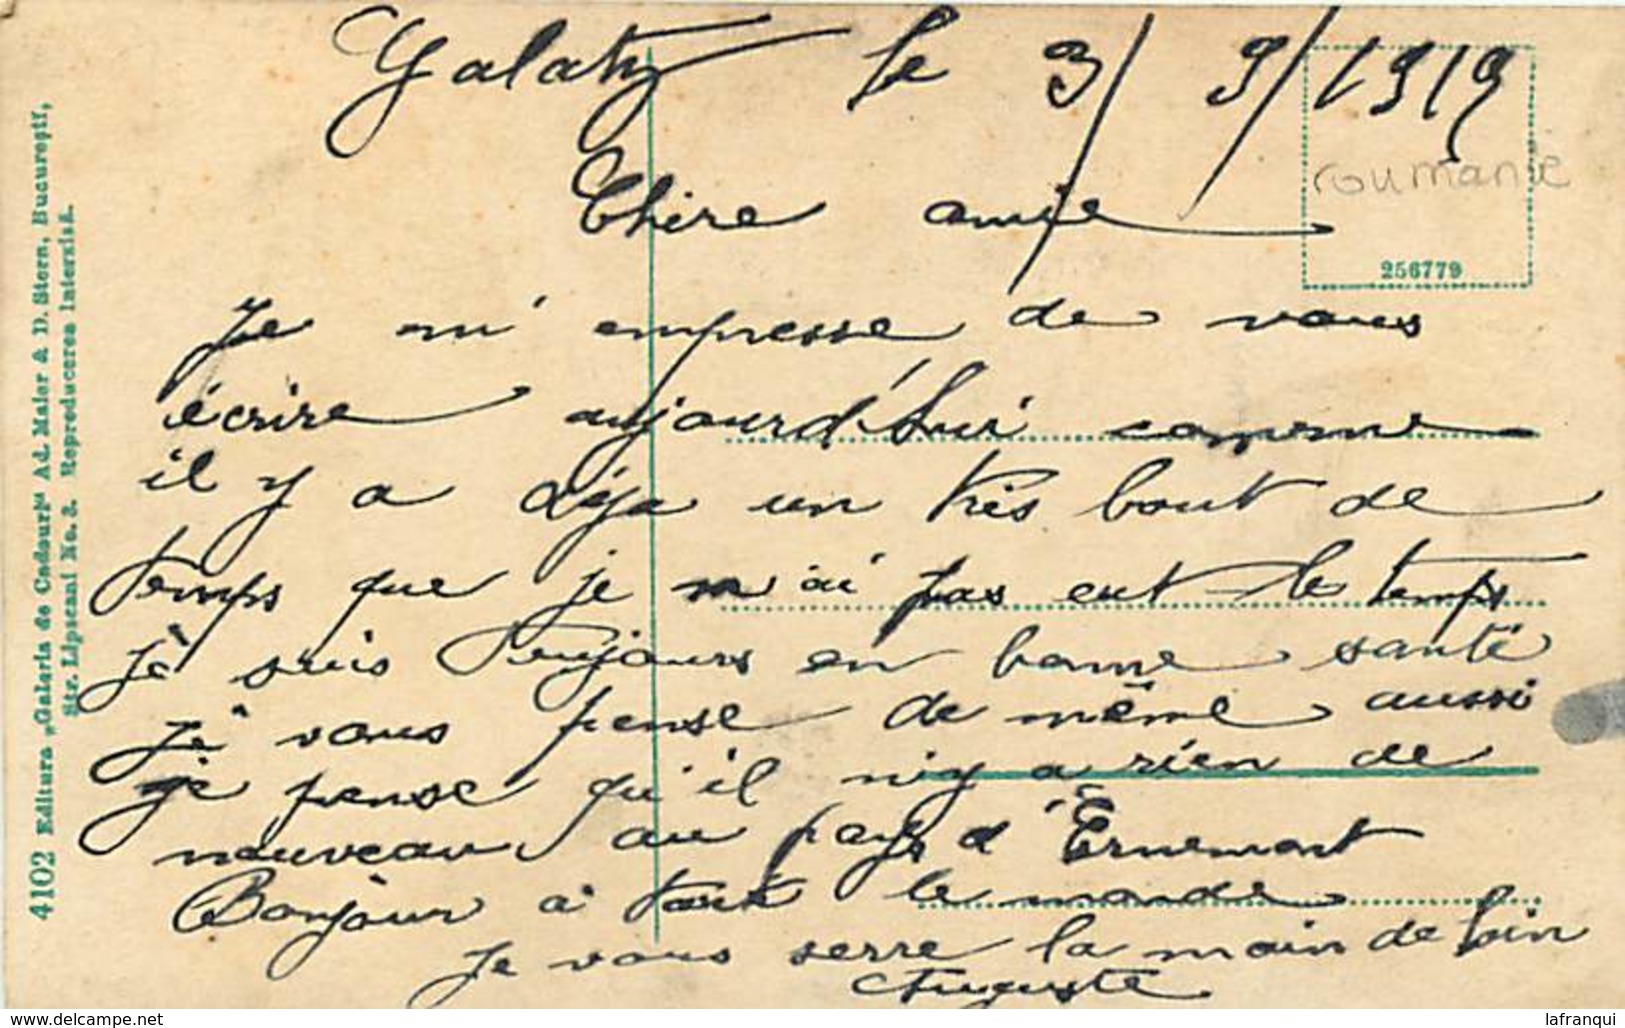 Galatz le 3/9/1919
roumanie
Chère amie
256779
Je m'empesse de vous
écrire aujourd'hui comme
il y a déja un très bout de
temps que je n'ai pas eut le temps
je suis toujours en bonne santé
je vous pense de même aussi
je pense qu'il n'y a rien de
nouveau au pays d'Ernemont
Bonjour à tout le monde
Je vous serre la main de loin
Auguste
4102 Editura „Galeria de Cadouri" Ad. Maier & D. Stern, Bucureşti,
Str. Lipscani No. 3. Reproducerea interzisă.
delcampe.net
lafranqui